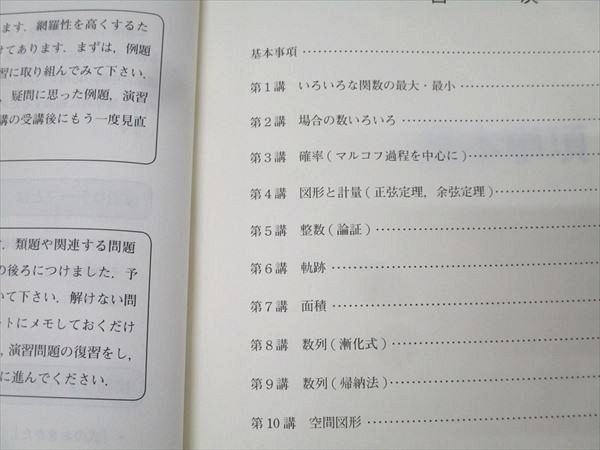 ます．網羅性を高くするた
けてあります．まずは，例題
習に取り組んでみて下さい．
，疑問に思った例題，演習
講の受講後にもう一度見直
．類題や関連する問題
の後ろにつけました．予
いて下さい．解けない問
ートにメモしておくだけ
，演習問題の復習をし，
に進んでください．
目 次
基本事項
第1講 いろいろな関数の最大・最小
第2講 場合の数いろいろ
第3講 確率(マルコフ過程を中心に)
第4講 図形と計量(正弦定理，余弦定理)
第5講 整数(論証)
第6講 軌跡
第7講 面積
第8講 数列(漸化式)
第9講 数列(帰納法)
第10講 空間図形